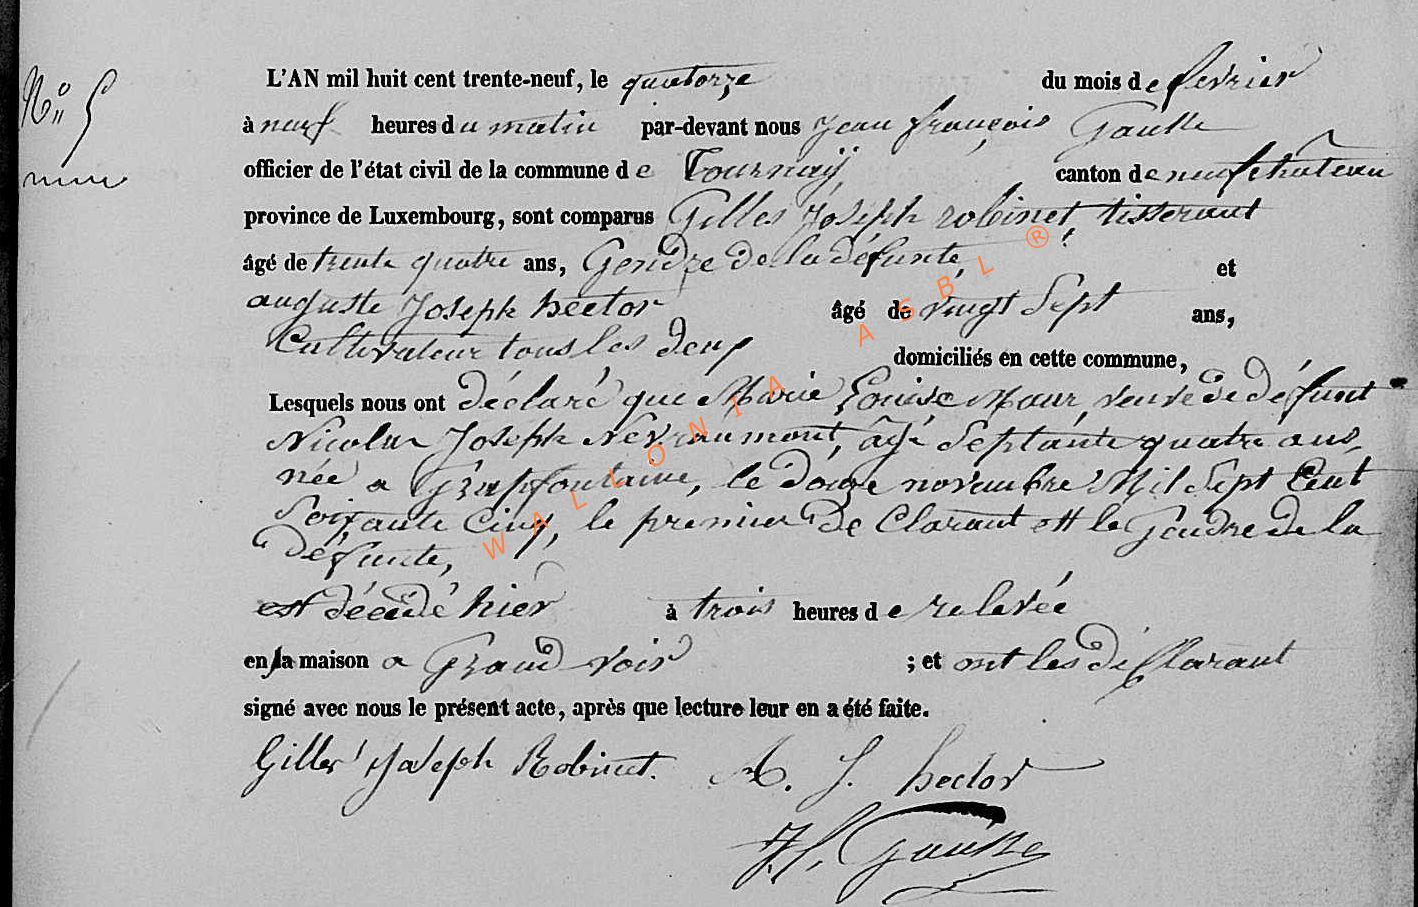 Nº 5
L'AN mil huit cent trente-neuf, le quatorze du mois de fevrier
à neuf heures du matin par-devant nous Jean françois Gausse
officier de l'état civil de la commune de Tournaÿ canton de neufchâteau
province de Luxembourg, sont comparus Gilles Joseph robinet, tisserant
âgé de trente quatre ans, Gendre de la défunte, et
auguste Joseph hector âgé de vingt Sept ans,
Cultivateur tous les deux domiciliés en cette commune,
Lesquels nous ont déclaré que Marie Louise Maur, veuve de défunt
Nicolas Joseph Nevraumont, âgé Septante quatre ans,
née a Grapfontaine, le douze novembre Mil Sept Cent
Soixante Cinq, le premier de Clarant est le Gendre de la
défunte,
est décédé hier à trois heures de relevée
en la maison a Grand voir ; et ont les déClarant
signé avec nous le présent acte, après que lecture leur en a été faite.
Gilles Joseph Robinet. A. J. hector
J. f. Gausse
WALLONIA ASBL ®